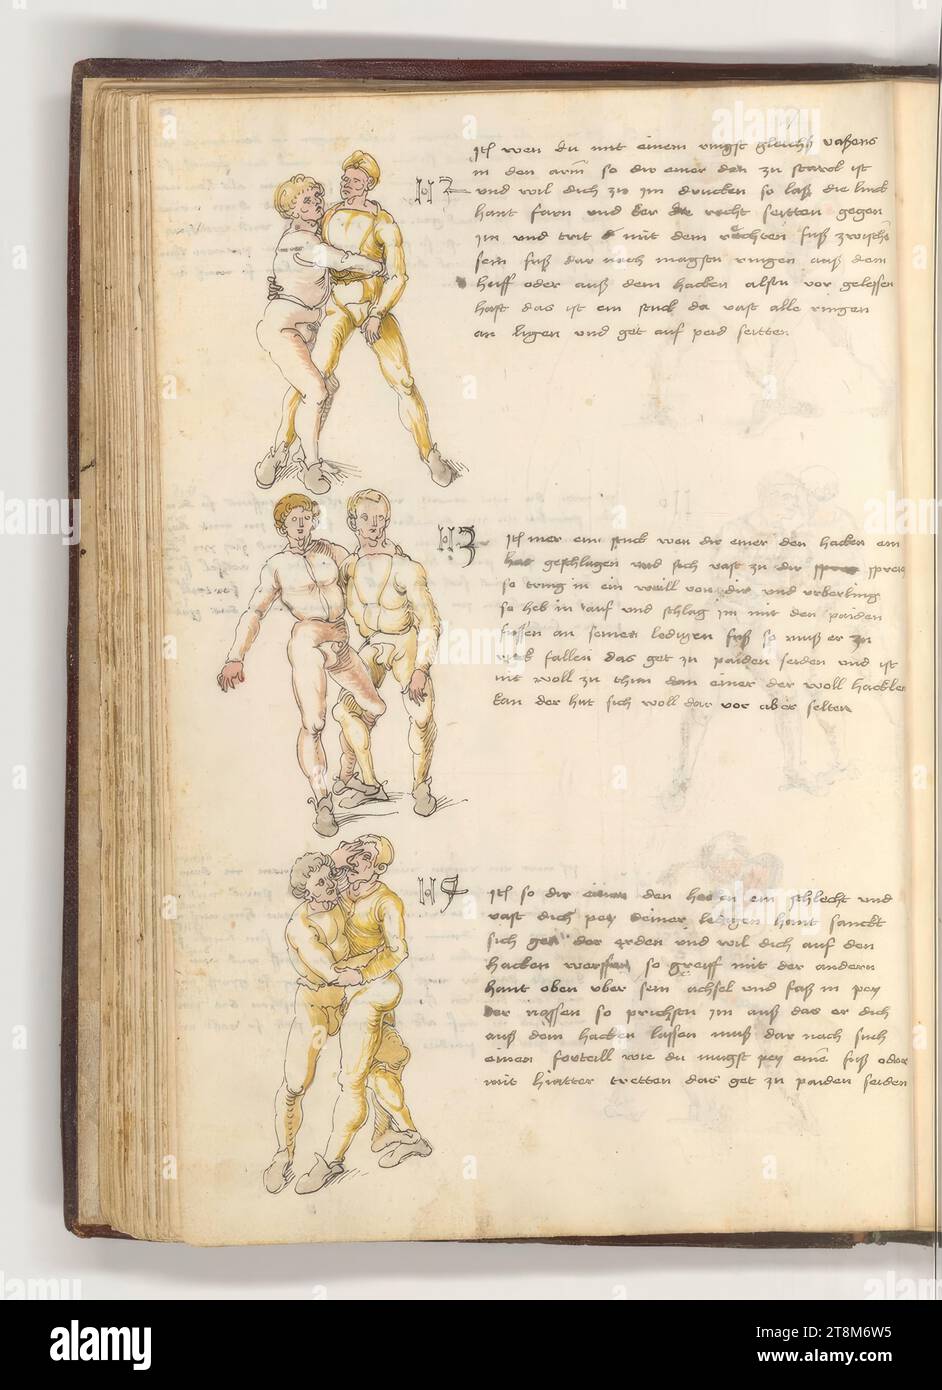 Itm wen du mit einem ringst gleichß vaßens
in den arm so dir einer den zu starck ist
und wil dich zu im drucken so laß die linck
hant farn und der recht seitten gegen
im und trit mit dem rechten fuß zwischn
sein fuß dar noch magstu ringen auß dem
huff oder auß dem hacken alßen vor gelessen
hast das ist ein stuck da vast alle ringen
an ligen und get auf peid seitten
113
Itm mer ein stuck wen dir einer den hacken ein
hat geschlagen und sich vast zu dir spreitz
so tring in ein weill von dir und urberling
so heb in auf und schlag im mit den paiden
fussen an seinen ledigen fuß so muß er zu
ruck fallen das get zu paiden seiden und ist
nit woll zu thun dan einer der woll hacklen
kan der hut sich woll dar vor aber selten
Itm so dir einer den hacken ein schlecht und
vast dich pey deiner ledigen hant sanckt
sich gen der erden und wil dich auf den
hacken werffen so greiff mit der andern
hant oben uber sein achsel und faß in pey
der nassen so prichstu im auß das er dich
auß dem hacken lassen muß dar noch such
einen forteill wie du mugst pey einem fuß oder
mit hintter tretten das get zu paiden seiden
alamy
Image ID: 2T8M6W5
www.alamy.com